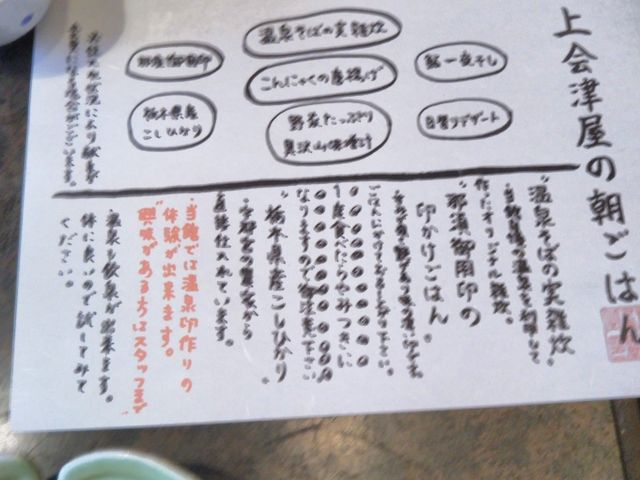 上会津屋の朝ごはん
鮎一夜干し
日替りデザート
温泉そばの実雑炊
こんにゃくの唐揚げ
野菜たっぷり
奥沢山味噌汁
那須御用卵
栃木県産
こしひかり
"温泉そばの実雑炊"
当館自慢の温泉を利用して
作ったオリジナル雑炊。
"那須御用卵の
卵かけごはん"
ごはんにかけてお召し上り下さい。
1度食べたらやみつきに
なりますので御注意下さい
"栃木県産こしひかり"
農家から
直接仕入れています。
・当館では温泉卵作りの
体験が出来ます。
興味がある方はスタッフまで
・温泉も飲泉が出来ます。
体に良いので試してみて
ください。